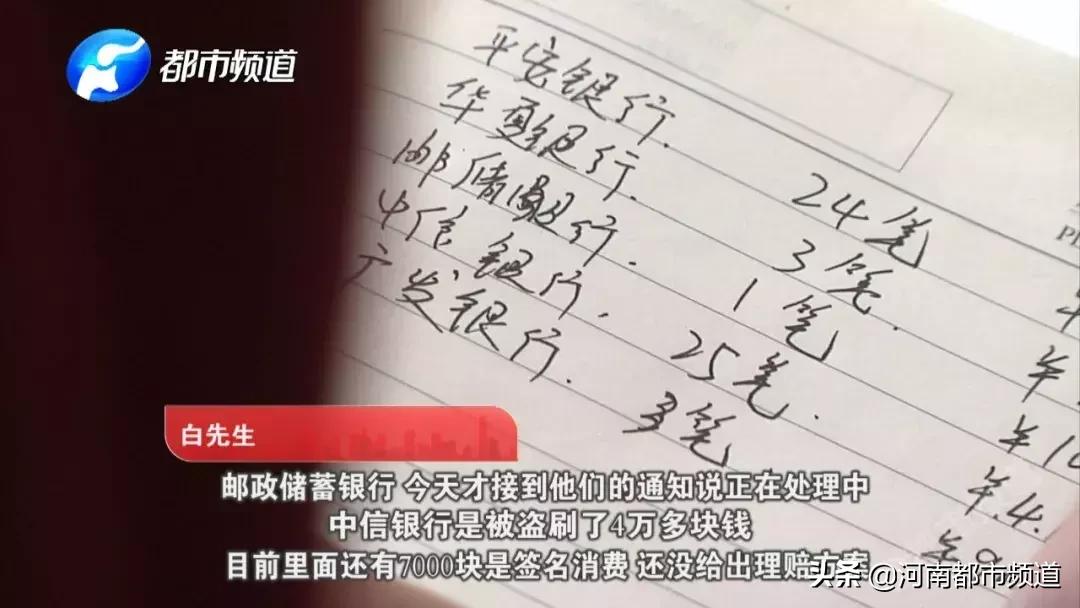 都市频道
平安银行. 24笔
华夏银行. 3笔.
邮储银行. 1笔
中信银行. 25笔.
广发银行. 3笔
白先生
邮政储蓄银行 今天才接到他们的通知说正在处理中
中信银行是被盗刷了4万多块钱
目前里面还有7000块是签名消费 还没给出理赔方案
头条 @河南都市频道